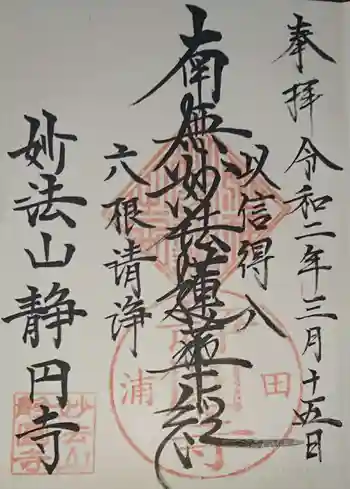 奉拝 令和二年三月十五日
以信得入
南無妙法蓮華経
六根請浄
妙法山静円寺
田
浦